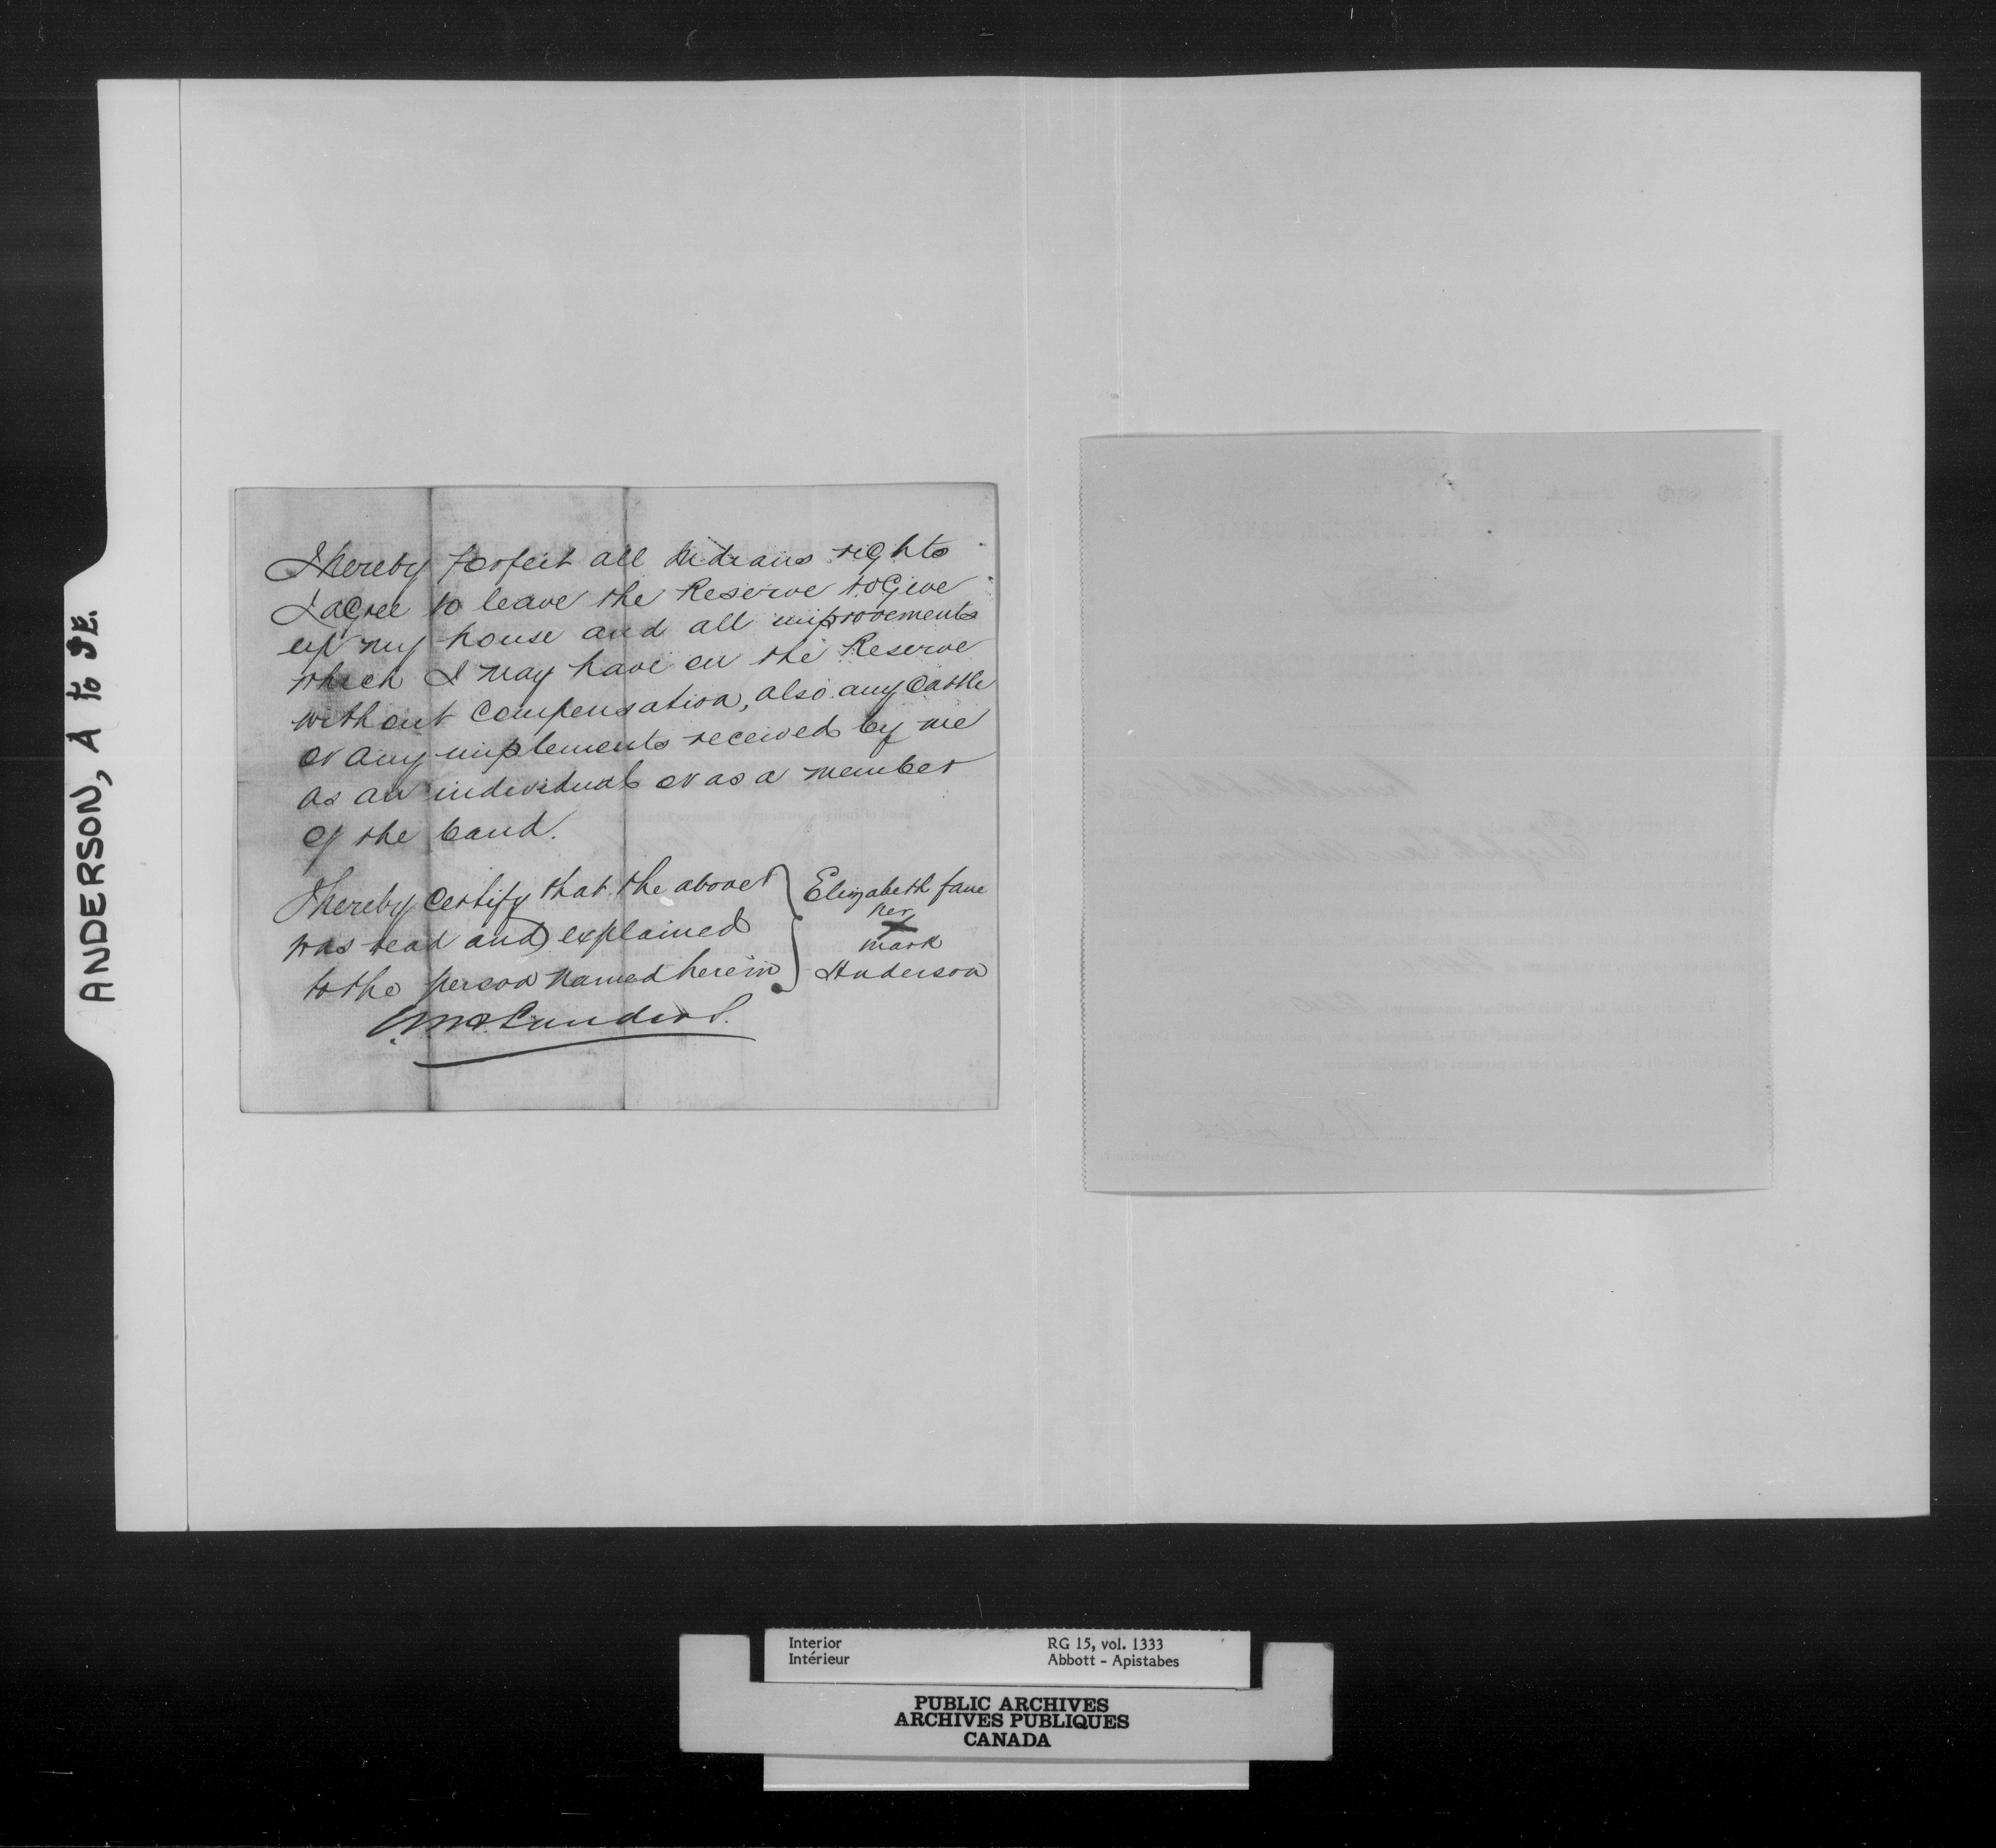 ANDERSON, A to JE.
I hereby forfeit all Indians rights
I agree to leave the Reserve to Give
up my house and all improvements
which I may have on the Reserve
without compensation, also any Cattle
or any implements received by me
as an individual or as a member
of the band.
I hereby Certify that the above
was read and explained
to the person named herein
Elizabeth Jane
her
X
mark
Anderson
Interior
Intérieur
RG 15, vol. 1333
Abbott - Apistabes
PUBLIC ARCHIVES
ARCHIVES PUBLIQUES
CANADA